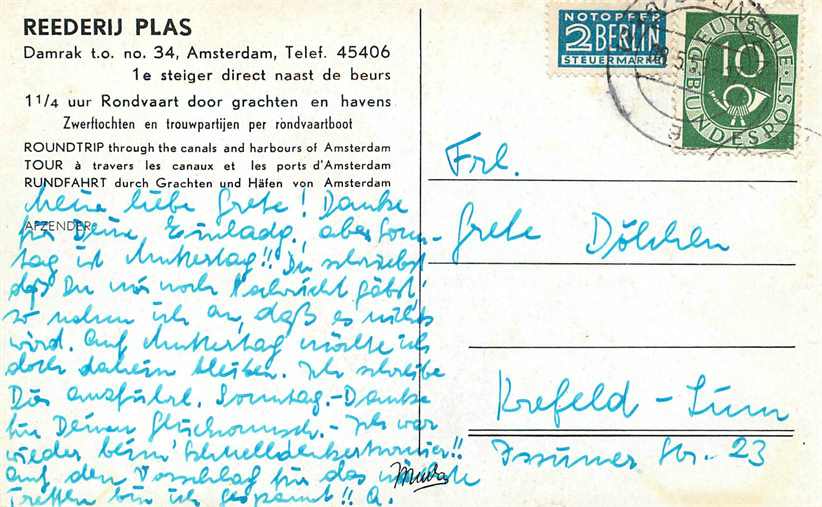 REEDERIJ PLAS
Damrak t.o. no. 34, Amsterdam, Telef. 45406
1e steiger direct naast de beurs
1 1/4 uur Rondvaart door grachten en havens
Zwerftochten en trouwpartijen per rondvaartboot
ROUNDTRIP through the canals and harbours of Amsterdam
TOUR à travers les canaux et les ports d'Amsterdam
RUNDFAHRT durch Grachten und Häfen von Amsterdam
AFZENDER
Meine liebe Grete! Danke
für Deine Einladg., aber Sonn-
tag ist Muttertag!! Du schriebst
daß Du mir noch Nachricht gäbst,
so nehm ich an, daß es nichts
wird. Auf Muttertag möchte ich
doch daheim bleiben. Ich schreibe
Dir ausführl. Sonntag.- Danke
für Deinen Glückwunsch.- Ich war
wieder beim Schnelldenkerturnier!!
Auf den Vorschlag für das nächste
Treffen bin ich gespannt!! A.
NOTOPFER
2 BERLIN
STEUERMARKE
DEUTSCHE BUNDESPOST
10
Frl.
Grete Dölchen
Krefeld - Linn
Issumer Str. 23